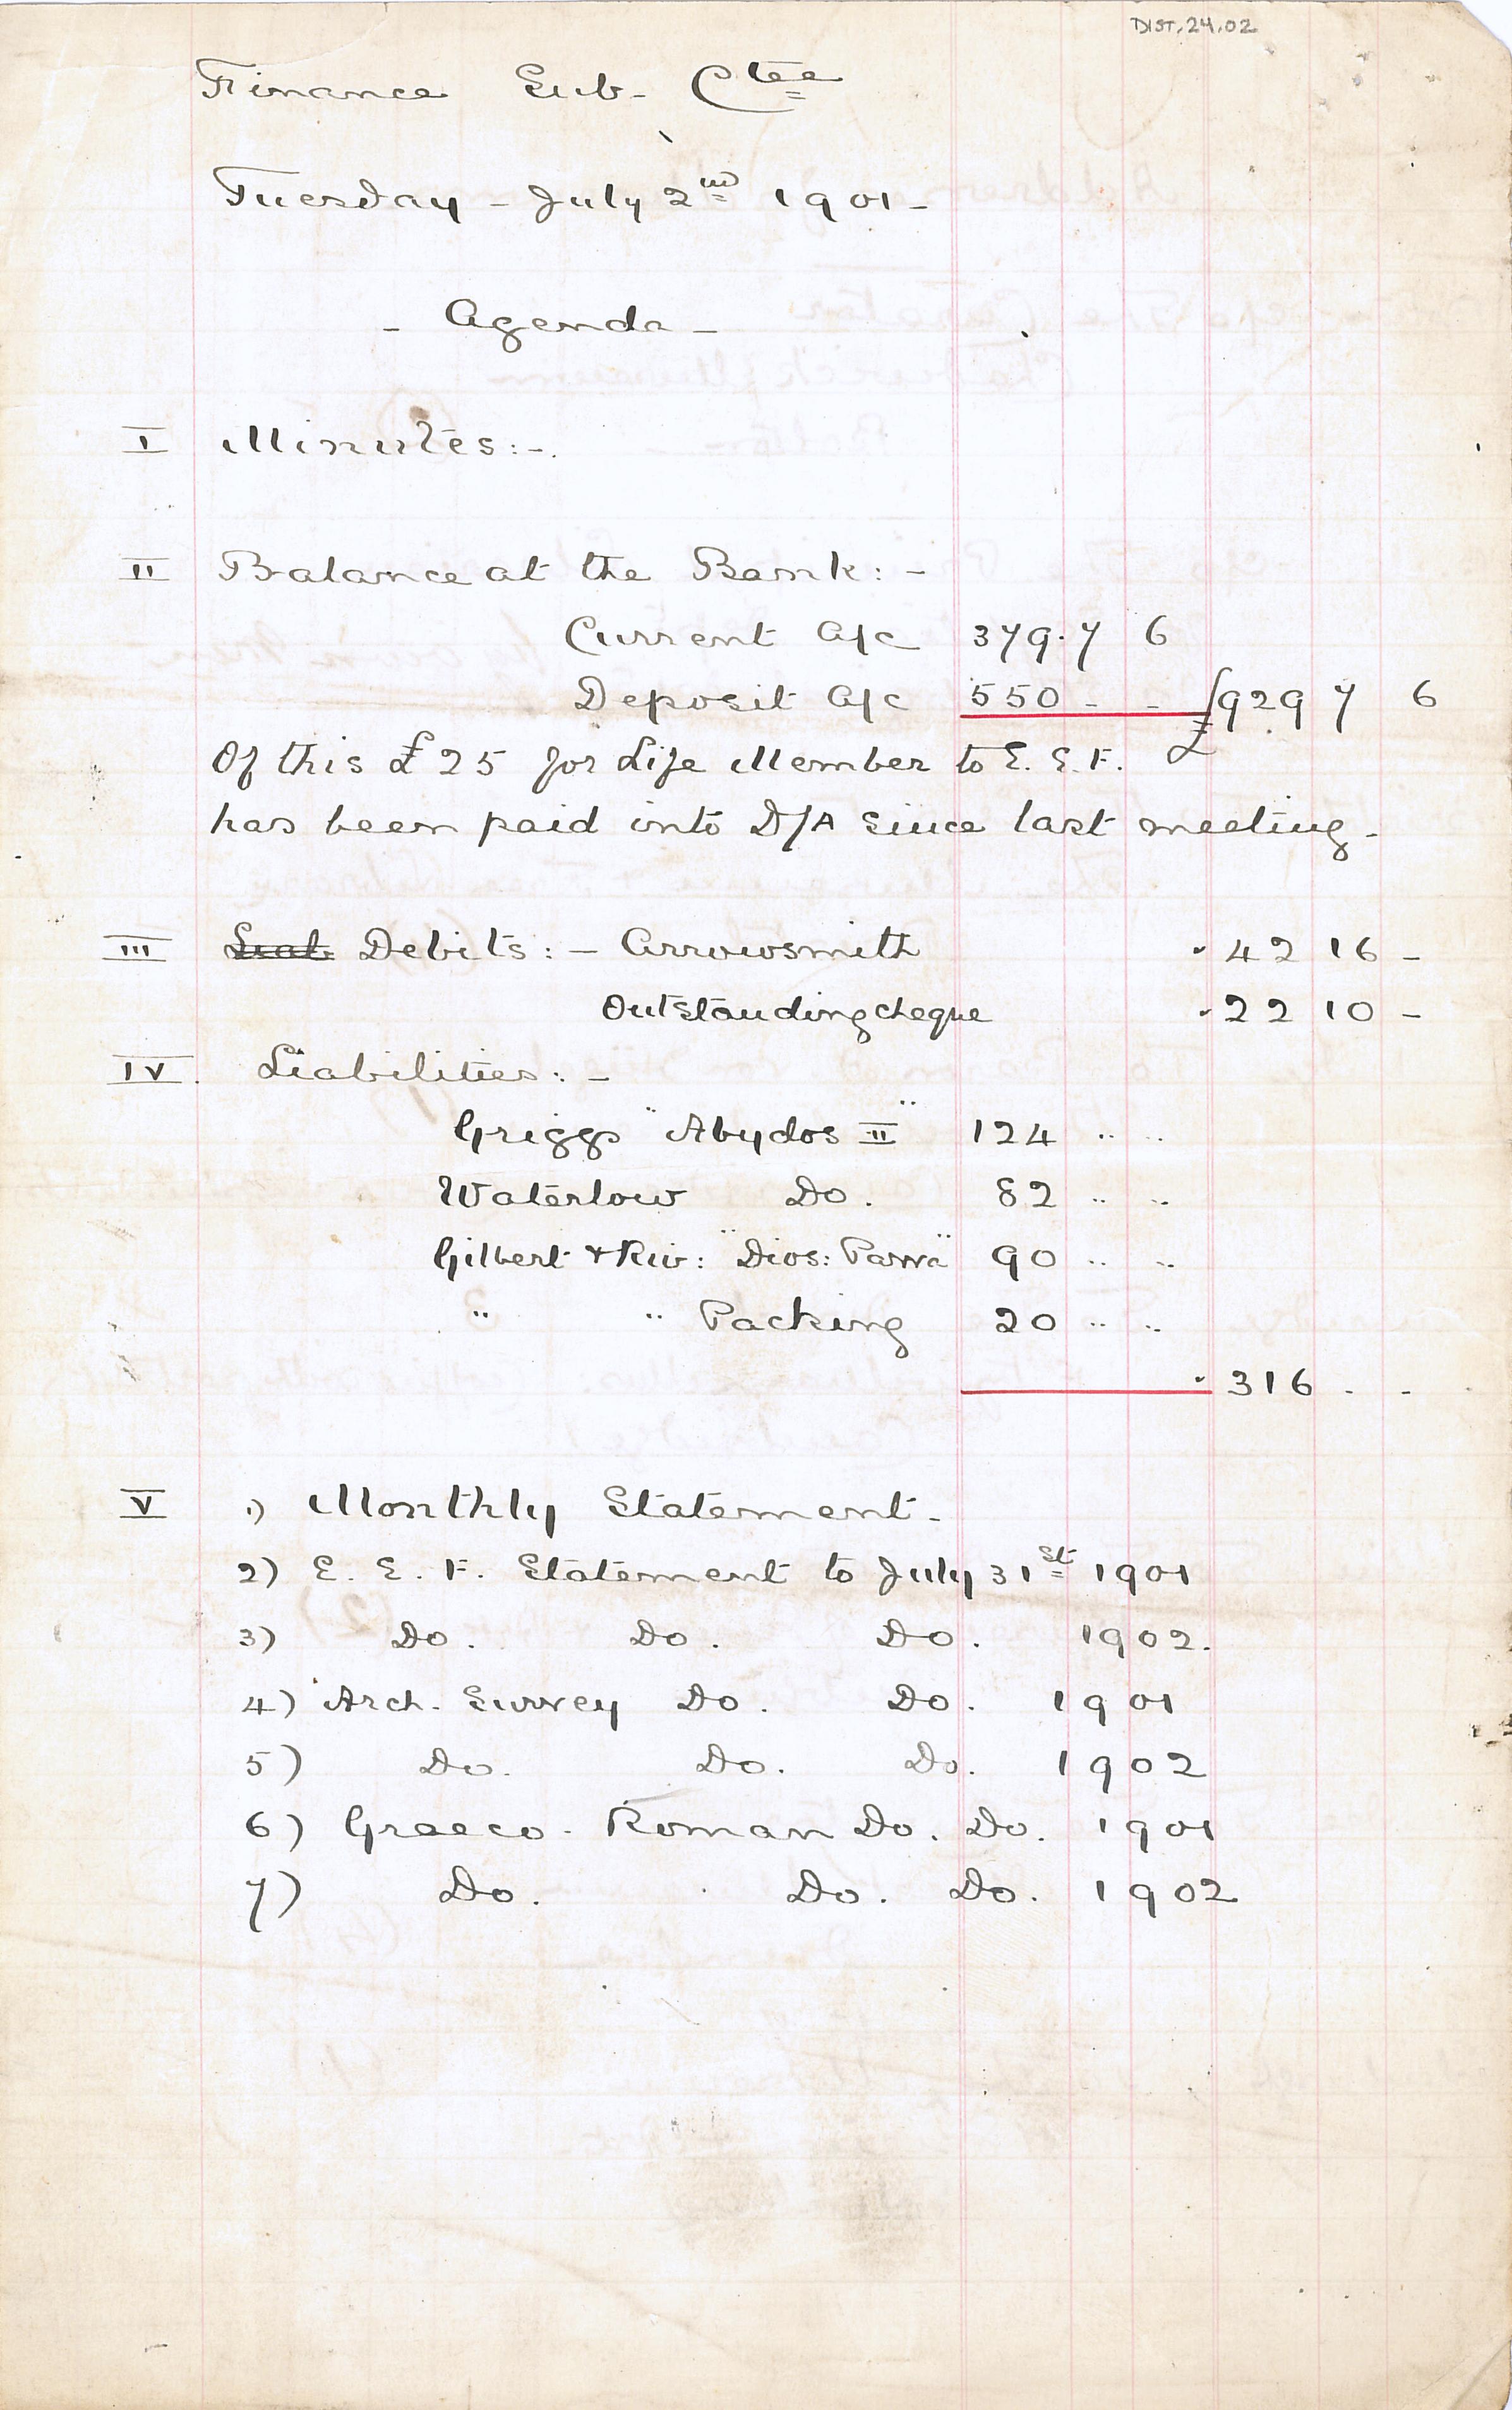 DIST.24.02
Finance Sub-Ctee
Tuesday - July 2nd 1901 -
- Agenda -
I Minutes:-.
II Balance at the Bank:-
Current A/c 379.7 6
Deposit A/c 550 - - £929 7 6
Of this £25 for Life Member to E.E.F. £
has been paid into D/A since last meeting -
III Liab Debits:- Arrowsmith 42 16 -
Outstanding cheque 22 10 -
IV. Liabilities:-
Griggs "Abydos II" 124 .. ..
Waterlow Do. 82 .. ..
Gilbert & Riv: "Dios: Parva" 90 .. ..
" " Packing 20 .. ..
316 . -
V 1) Monthly Statement -
2) E.E.F. Statement to July 31st 1901
3) Do. Do. Do. 1902.
4) Arch. Survey Do. Do. 1901
5) Do. Do. Do. 1902
6) Graeco-Roman Do. Do. 1901
7) Do. Do. Do. 1902